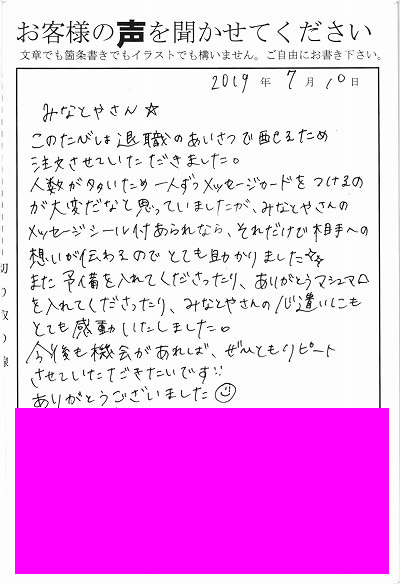 お客様の声を聞かせてください
文章でも箇条書きでもイラストでも構いません。ご自由にお書き下さい。
2019年 7月 10日
みなとやさん☆
このたびは退職のあいさつで配るため
注文させていただきました。
人数が多いため一人ずつメッセージカードをつけるの
が大変だなと思っていましたが、みなとやさんの
メッセージシール付あられなら、それだけで相手への
想いが伝わるのでとても助かりました☆☆
また予備を入れてくださったり、ありがとうマシュマロ
を入れてくださったり、みなとやさんの心遣いにも
とても感動いたしました。
今後も機会があれば、ぜひともリピート
させていただきたいです!!
ありがとうございました☺
切り取り線